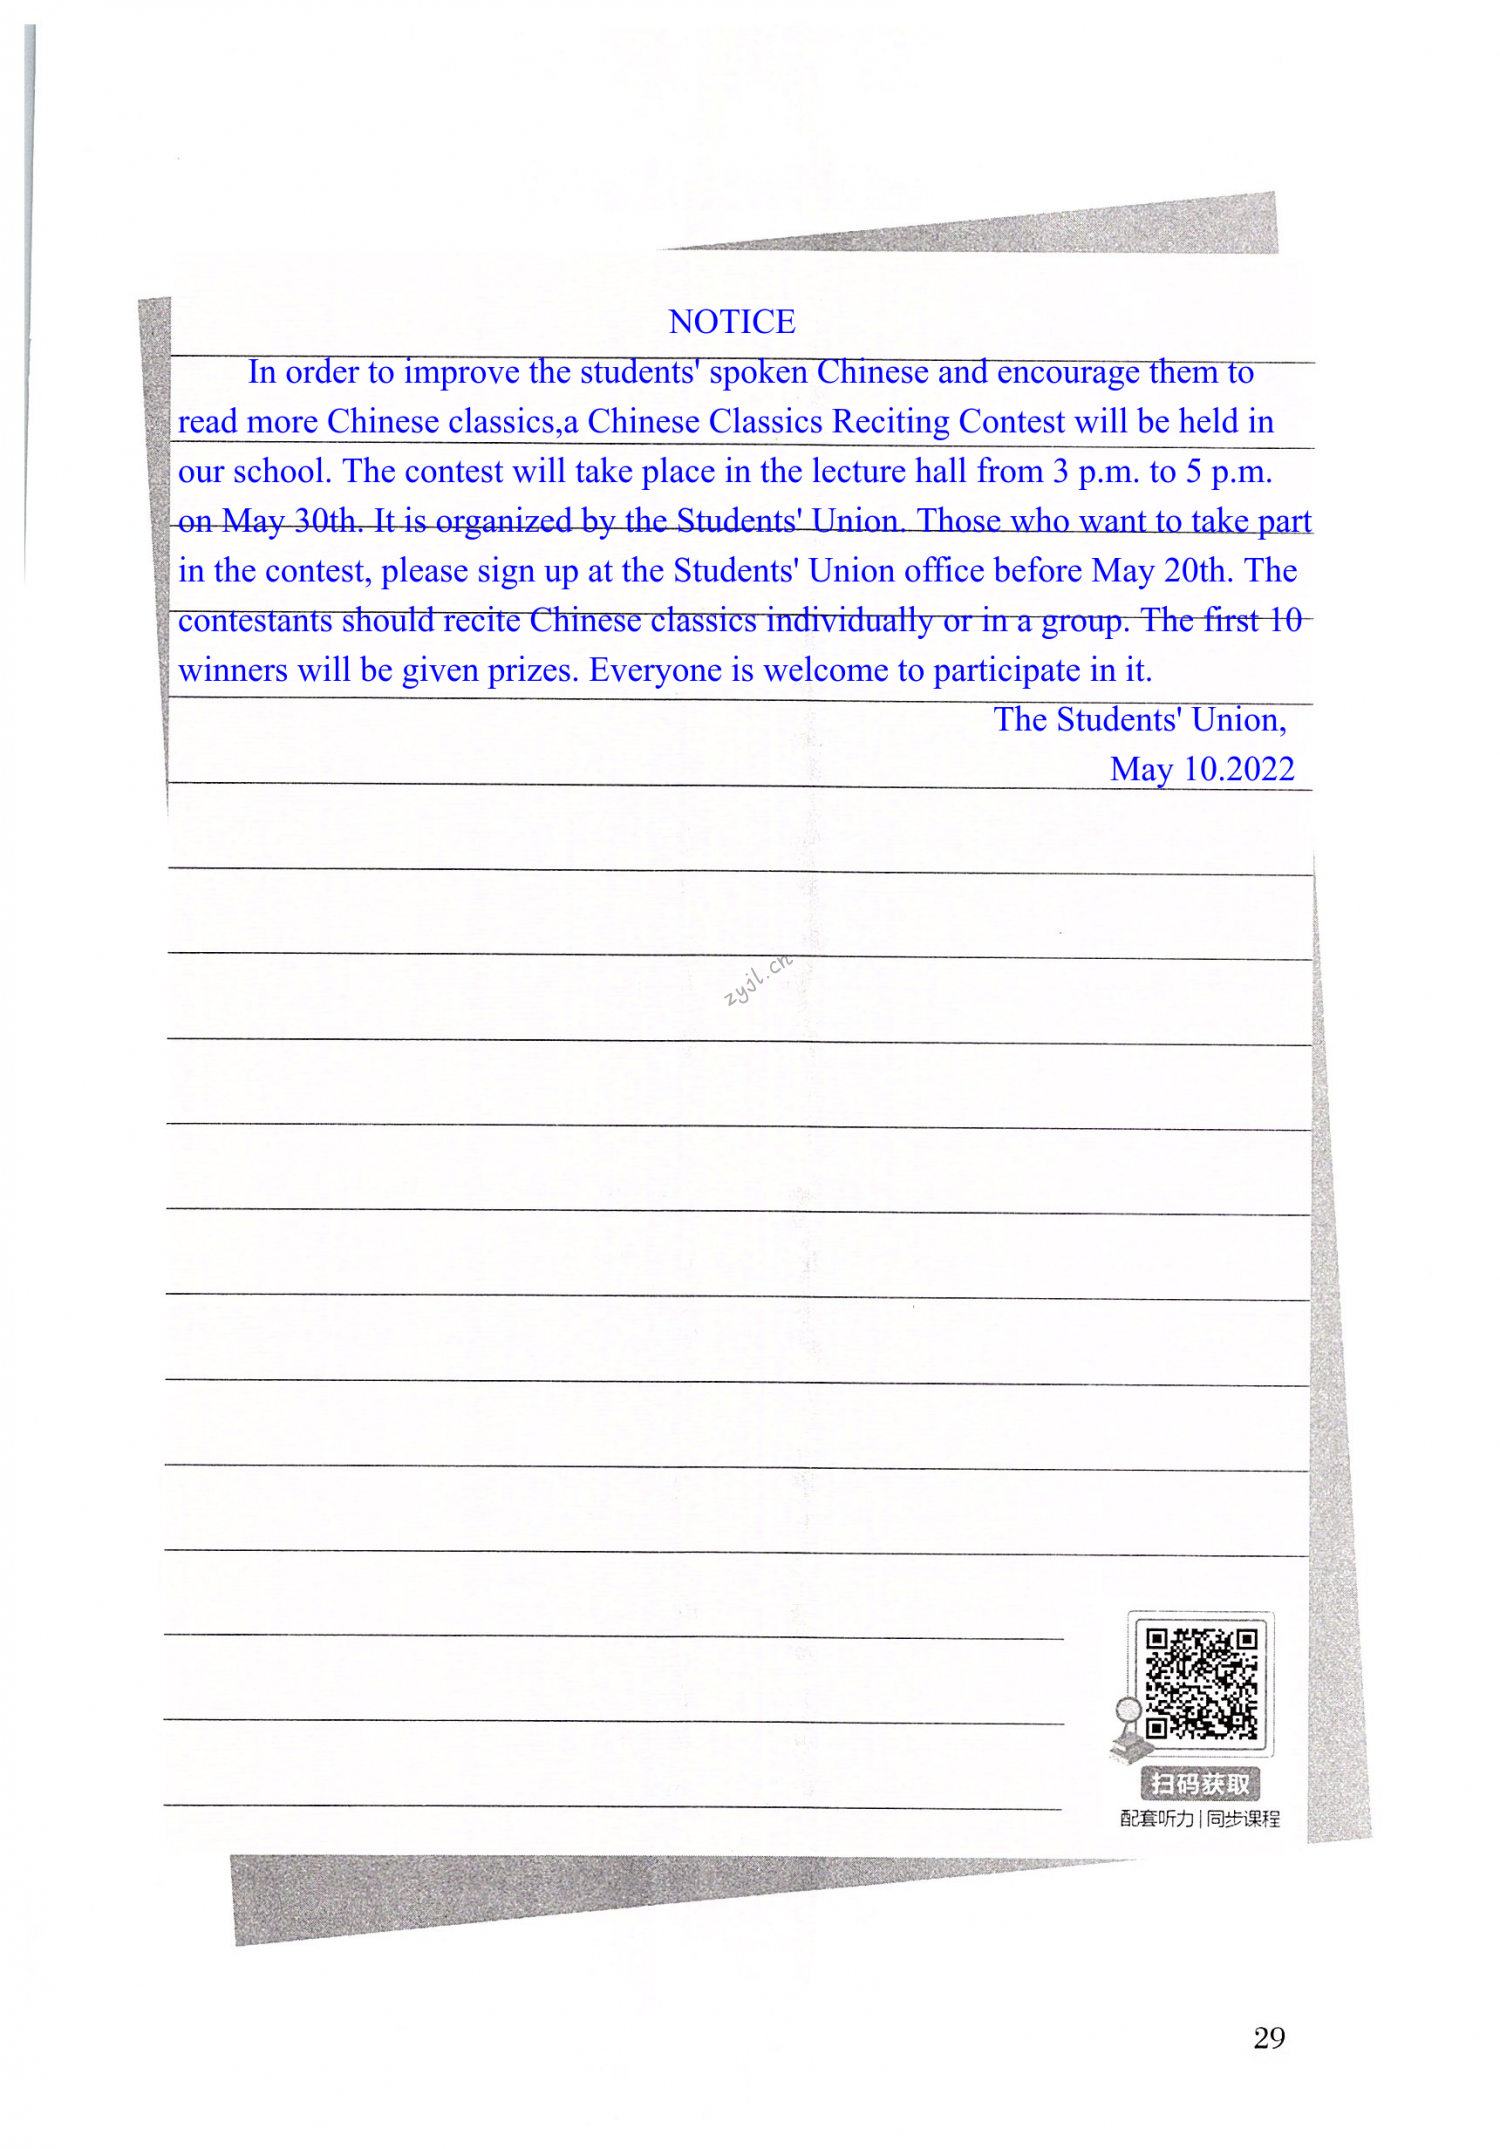 NOTICE
In order to improve the students' spoken Chinese and encourage them to
read more Chinese classics,a Chinese Classics Reciting Contest will be held in
our school. The contest will take place in the lecture hall from 3 p.m. to 5 p.m.
on May 30th. It is organized by the Students' Union. Those who want to take part
in the contest, please sign up at the Students' Union office before May 20th. The
contestants should recite Chinese classics individually or in a group. The first 10
winners will be given prizes. Everyone is welcome to participate in it.
The Students' Union,
May 10.2022
zyjl.cn
扫码获取
配套听力|同步课程
29